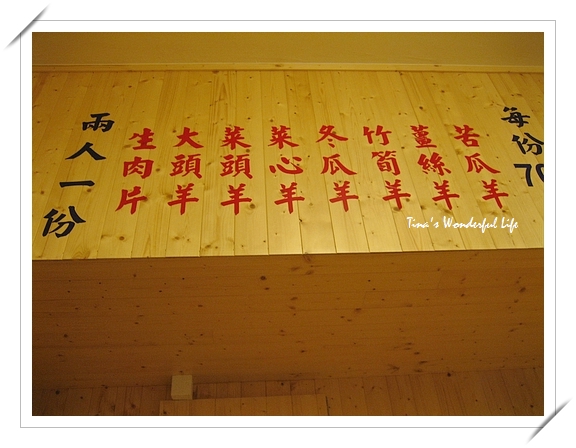 每份70
苦瓜羊
薑絲羊
竹筍羊
冬瓜羊
菜心羊
菜頭羊
大頭羊
生肉片
兩人一份
Tina's Wonderful Life